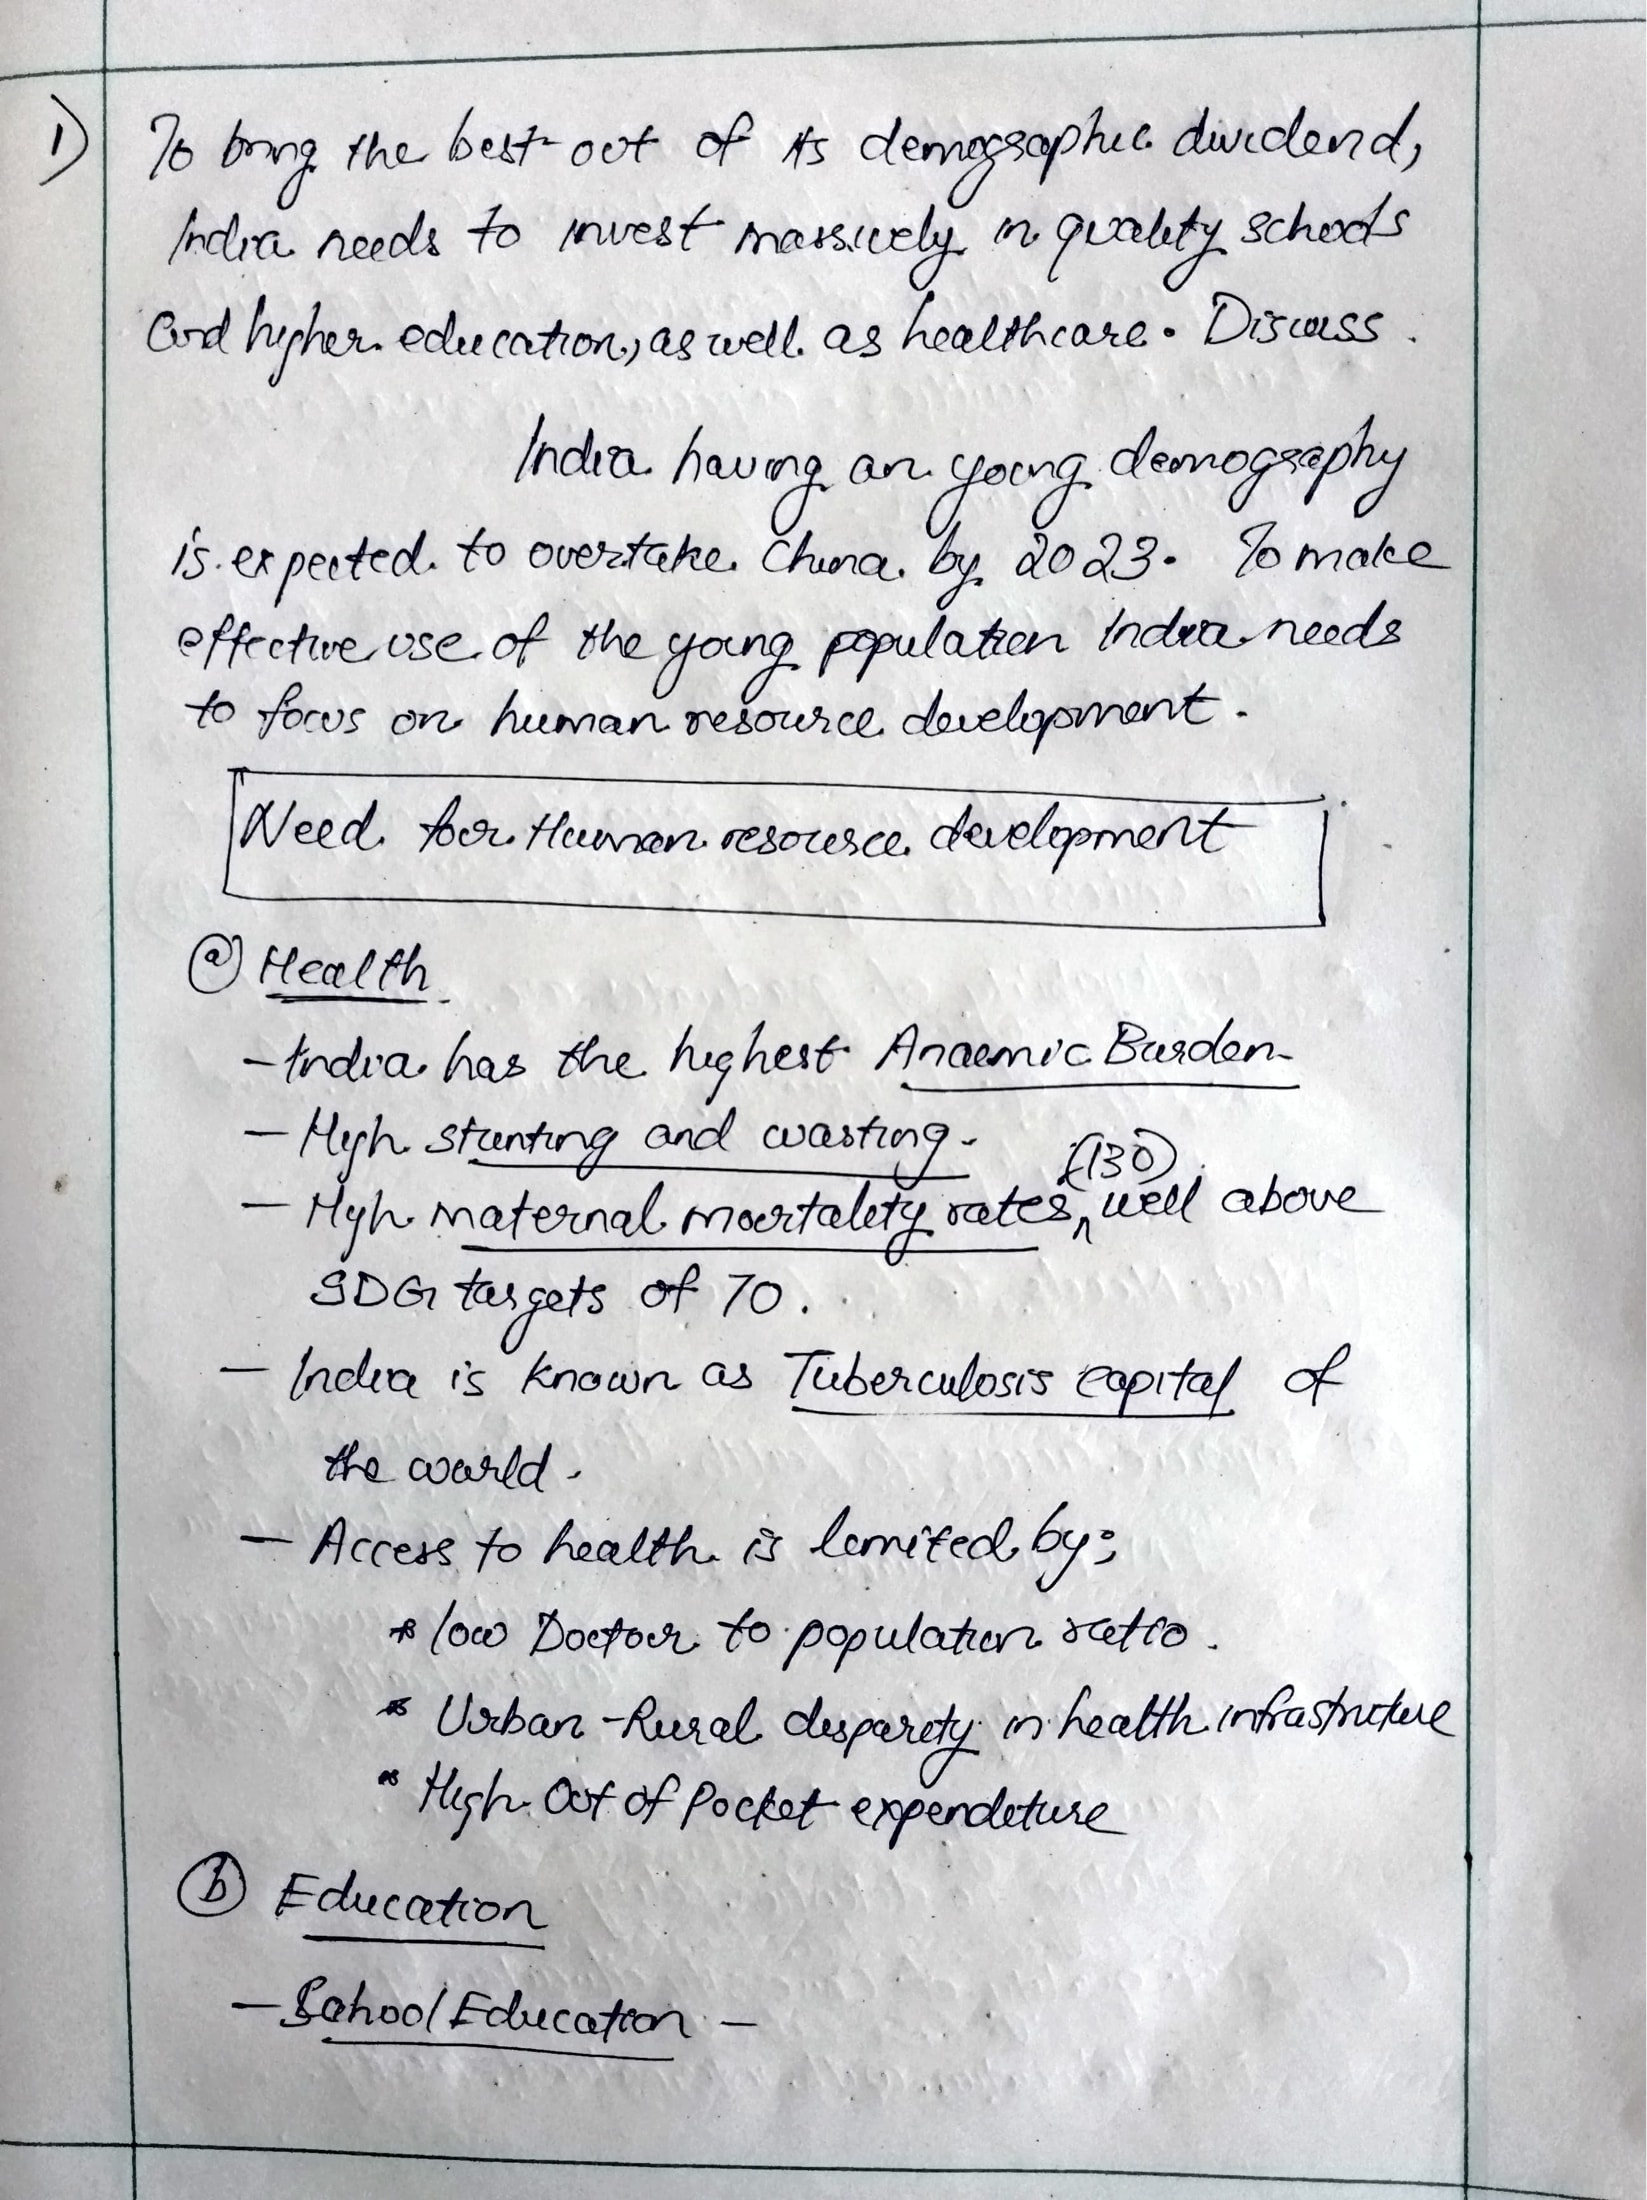 1) To bring the best out of its demographic dividend,
India needs to invest massively in quality schools
and higher education, as well as healthcare. Discuss.
India having an young demography
is expected to overtake China by 2023. To make
effective use of the young population India needs
to focus on human resource development.
Need for Human resource development
(a) Health
- India has the highest Anaemic Burden
- High stunting and wasting.
(130)
- High maternal mortality rates, well above
SDG targets of 70.
- India is known as Tuberculosis capital of
the world.
- Access to health is limited by;
* low Doctor to population ratio.
* Urban-Rural disparity in health infrastructure
* High Out of Pocket expenditure
(b) Education
- School Education -